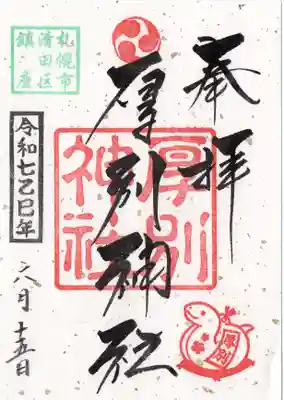 奉拝
厚別神社
厚別
神社
札幌市
清田区
鎮座
令和七乙巳年
六月十五日
厚別